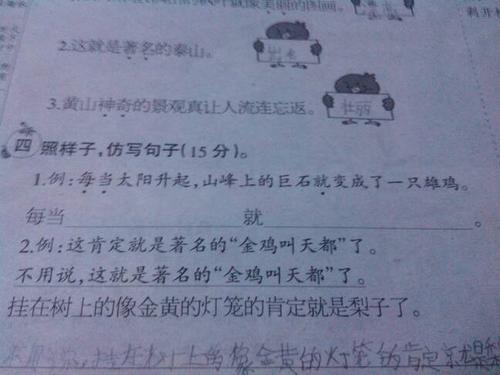 就像美丽的图画。
2.这就是著名的泰山。
3.黄山神奇的景观真让人流连忘返。 壮丽
四 照样子,仿写句子(15分)。
1.例:每当太阳升起,山峰上的巨石就变成了一只雄鸡。
每当 就 。
2.例:这肯定就是著名的“金鸡叫天都”了。
不用说,这就是著名的“金鸡叫天都”了。
挂在树上的像金黄的灯笼的肯定就是梨子了。
不用说,挂在树上的像金黄的灯笼的肯定就是